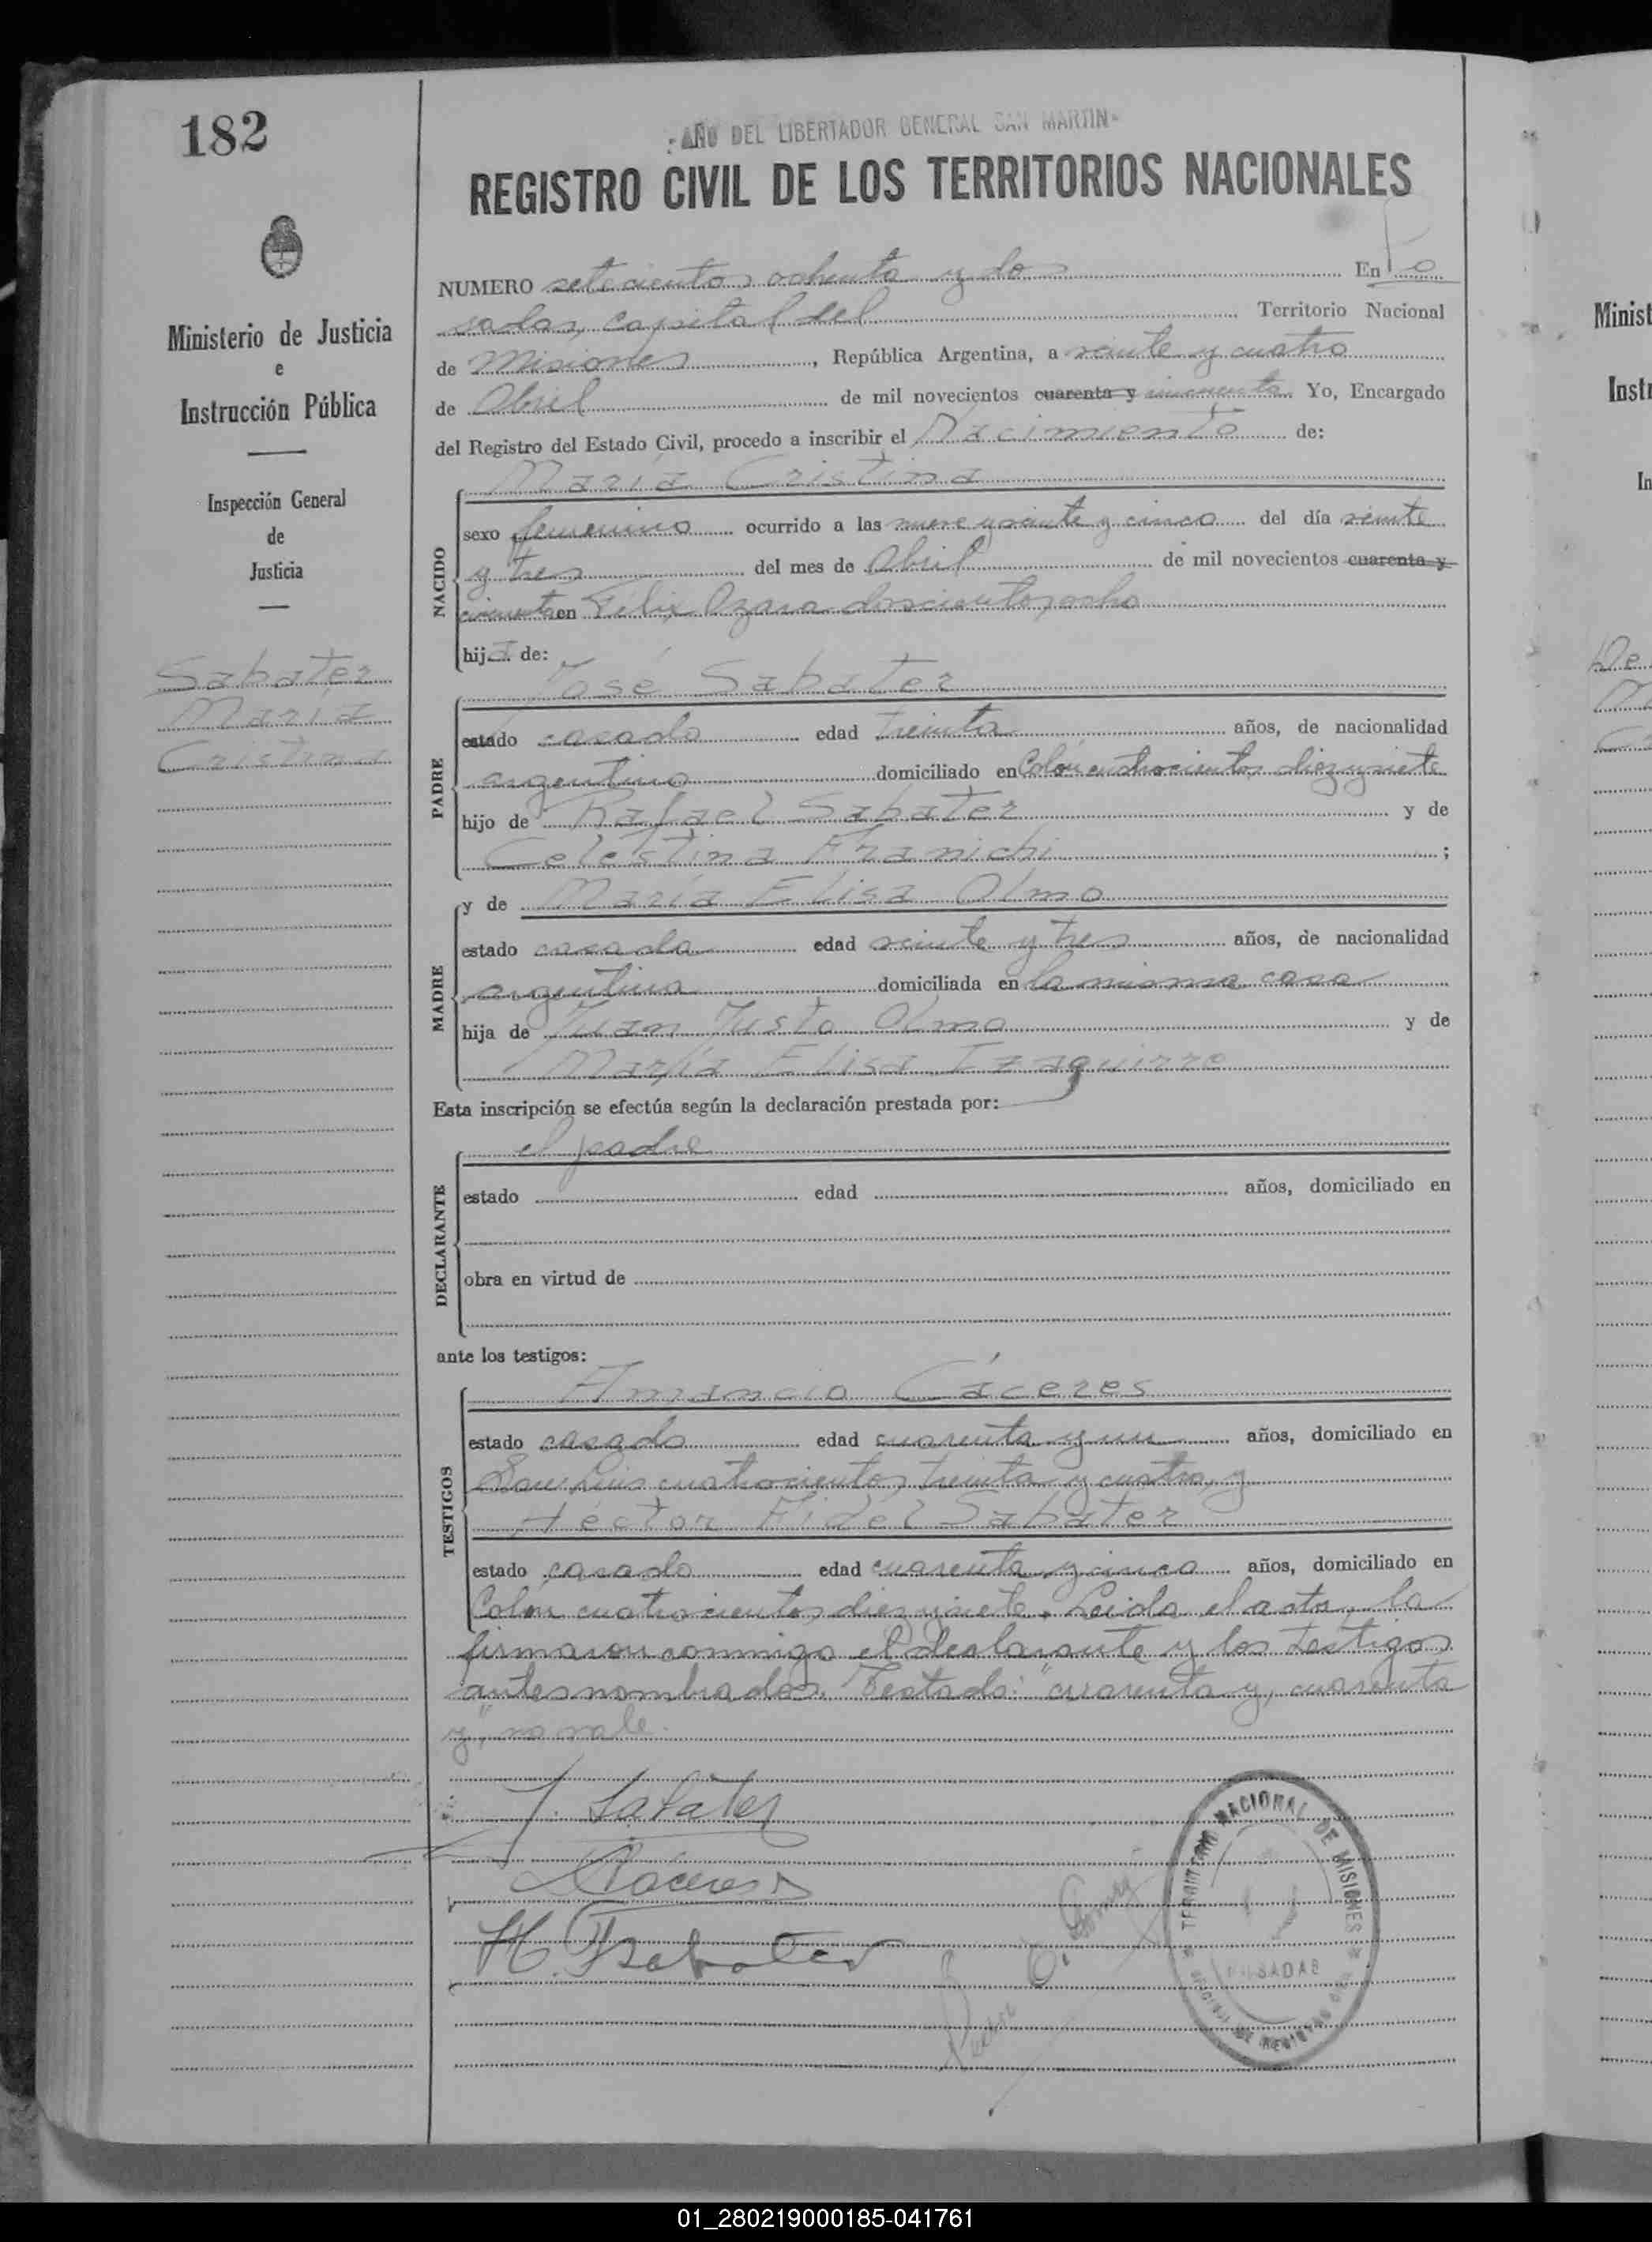 182
"AÑO DEL LIBERTADOR GENERAL SAN MARTIN"
REGISTRO CIVIL DE LOS TERRITORIOS NACIONALES
Ministerio de Justicia
e
Instrucción Pública
Inspección General
de
Justicia
Sabater
María
Cristina
NUMERO setecientos ochenta y dos En Po
sadas, capital del Territorio Nacional
de Misiones, República Argentina, a veinte y cuatro
de Abril de mil novecientos cuarenta y cincuenta. Yo, Encargado
del Registro del Estado Civil, procedo a inscribir el Nacimiento de:
María Cristina
NACIDO
sexo femenino ocurrido a las nueve y veinte y cinco del día veinte
y tres del mes de Abril de mil novecientos cuarenta y
cincuenta en Félix Azara doscientos ocho
hija de:
José Sabater
PADRE
estado casado edad treinta años, de nacionalidad
argentino domiciliado en Colón cuatrocientos diez y siete
hijo de Rafael Sabater y de
Celestina Franichi ;
MADRE
y de María Elisa Olmo
estado casada edad veinte y tres años, de nacionalidad
argentina domiciliada en la misma casa
hija de Juan Justo Olmo y de
María Elisa Izaguirre
Esta inscripción se efectúa según la declaración prestada por:
el padre
DECLARANTE
estado edad años, domiciliado en
obra en virtud de
ante los testigos:
TESTIGOS
Amancio Cáceres
estado casado edad cuarenta y un años, domiciliado en
San Luis cuatrocientos treinta y cuatro y
Héctor Fidel Sabater
estado casado edad cuarenta y cinco años, domiciliado en
Colón cuatrocientos diez y siete. Leída el acta, la
firmaron conmigo el declarante y los testigos
antes nombrados. Testado: "cuarenta y, cuarenta
y", no vale.
J. Sabater
Cáceres
H. F Sabater
TERRITORIO NACIONAL DE MISIONES
POSADAS
Minist
Instr
In
De
01_280219000185-041761